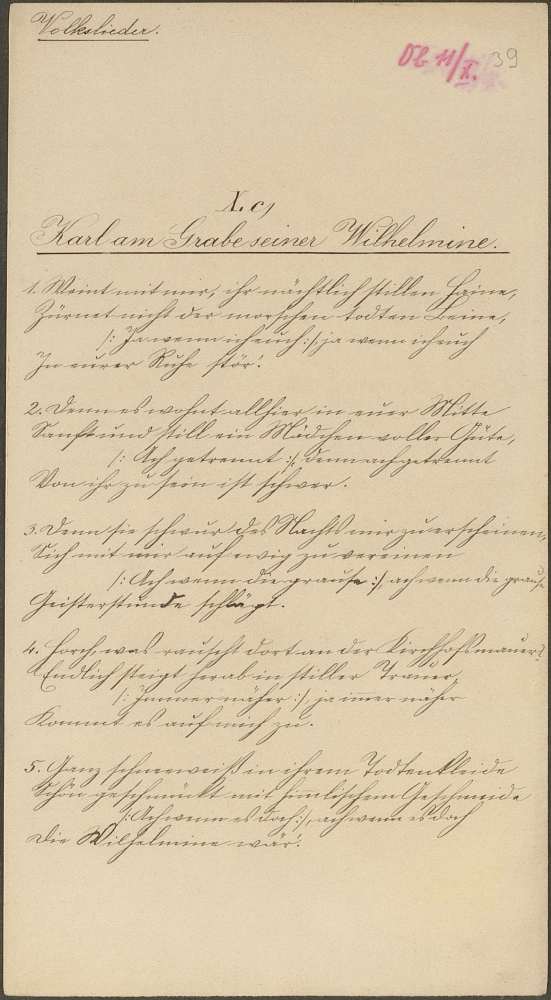 Volkslieder.
Ob 11/X. 39
X. c)
Karl am Grabe seiner Wilhelmine.
1. Weint mit mir, ihr nächtlich stillen Haine,
Zürnet nicht der morschen todten Beine,
/: Ja wenn ich euch :/ ja wenn ich euch
In eurer Ruhe stör'.
2. Denn es wohnt allhier in euer Mitte
Sanft und still ein Mädchen voller Güte,
/: Ach getrennt :/ denn ach getrennt
Von ihr zu sein ist schwer.
3. Denn sie schwur des Nachts mir zu erscheinen,
Sich mit mir auf ewig zu vereinen
/: Ach wenn die grause :/ ach wenn die grause
Geisterstunde schlägt.
4. Horch, was rauscht dort an der Kirchhofsmauer?
Endlich steigt herab in stiller Trauer,
/: Immer näher :/ ja imer näher
Kommt es auf mich zu.
5. Ganz schneeweiß in ihrem Todtenkleide
Schön geschmückt mit himlischem Geschmeide
/: Ach wenn es doch :/, ach wenn es doch
Die Wilhelmine wär'.